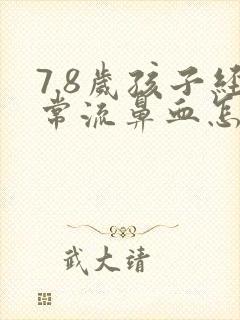 7,8歲孩子經
常流鼻血怎
武大靖